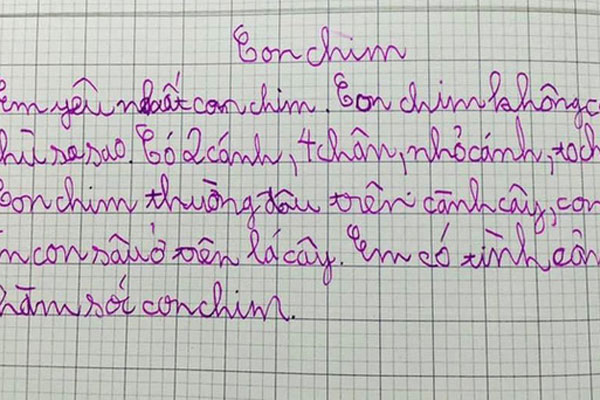 Con chim
Em yêu nhất con chim. Con chim không c
hù sa sao. Có 2 cánh, 4 chân, nhỏ cánh, to ch
Con chim thường đâu trên cành cây, con
ăn con sâu ở trên lá cây. Em có tình côn
hăm sốc con chim.